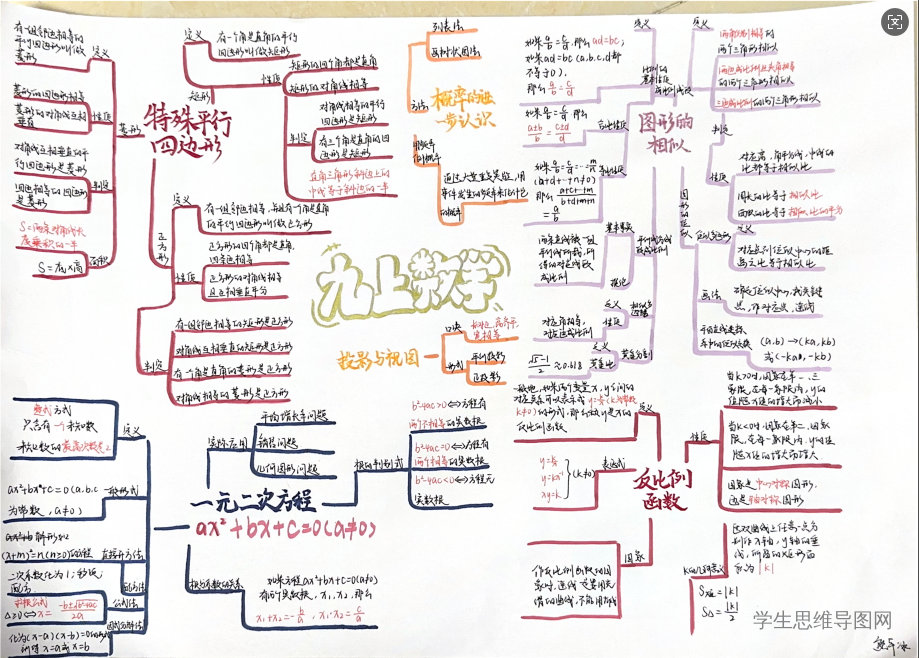 有一组邻边相等的
平行四边形叫做
菱形
定义
菱形的四边相等
菱形的对角线互相
垂直
性质
菱形
对角线互相垂直的平
行四边形是菱形
四边相等的四边形
是菱形
判定
S=两条对角线长
度乘积的一半
S=底×高
面积
特殊平行
四边形
定义
有一个角是直角的平行
四边形叫做矩形
矩形
性质
矩形的四个角都是直角
矩形的对角线相等
判定
对角线相等的平行
四边形是矩形
有三个角是直角的四
边形是矩形
直角三角形斜边上的
中线等于斜边的一半
正方形
定义
有一组邻边相等,并且有一个角是直角
的平行四边形叫做正方形
性质
正方形的四个角都是直角,
四条边相等
正方形的对角线相等
且互相垂直平分
判定
有一组邻边相等的矩形是正方形
对角线互相垂直的矩形是正方形
有一个角是直角的菱形是正方形
对角线相等的菱形是正方形
概率的进
一步认识
方法
列表法
画树状图法
用频率
估计概率
通过大量重复实验,用
事件发生的频率来估计它
的概率
九上数学
投影与视图
口诀
长对正,高平齐,
宽相等
形式
平行投影
正投影
图形的
相似
定义
如果a/b=c/d,那么ad=bc;
如果ad=bc(a、b、c、d都
不等于0),
那么a/b=c/d
比例的
基本性质
成比例线段
如果a/b=c/d
a±b/b=c±d/d
合比性质
如果a/b=c/d=…=m/n
(b+d+…+n≠0)
那么a+c+…+m/b+d+…+n
=a/b
等比性质
两条直线被一组
平行线所截,所
得的对应线段
成比例
基本事实
推论
平行线分线
段成比例
定义
对应角相等,
对应边成比例
性质
相似多边形
定义
√5-1/2≈0.618
黄金比
黄金分割
定义
两角分别相等的
两个三角形相似
两边成比例且夹角相等
的两个三角形相似
三边成比例的两个三角形相似
判定
性质
对应高,角平分线,中线的
比都等于相似比
周长的比等于相似比
面积的比等于相似比的平方
图形的位似
位似多边形
定义
对应点到位似中心的距
离之比等于相似比
画法
确定位似中心,找关键
点,作对应点,连线
平面直角坐标
系中的位似变换
(a,b)→(ka,kb)
或(-ka,-kb)
反比例
函数
定义
一般地,如果两个变量x,y之间的
对应关系可以表示成y=k/x(k为常数
k≠0)的形式,那么称y是x的
反比例函数
表达式
y=k/x
y=kx⁻¹
xy=k
(k≠0)
图象
作反比例函数的图
象时,连线一定要用光
滑的曲线,不能用折线
性质
当k>0时,图象在第一、三
象限,在每一象限内,y的
值随x值的增大而减小
当k<0时,图象在第二、四象
限,在每一象限内,y的值
随x值的增大而增大
图象是中心对称图形,
也是轴对称图形
K的几何意义
在双曲线上任意一点分
别作x轴,y轴的垂
线,所围的矩形面
积为|k|
S矩=|k|
S△=|k|/2
一元二次方程
ax²+bx+c=0(a≠0)
定义
整式方程
只含有一个未知数
未知数的最高次数是2
一般形式
ax²+bx+c=0(a,b,c
为常数,a≠0)
直接开方法
(x+m)²=n(n≥0)的方程
配方法
二次系数化为1;移项;
配方
公式法
求根公式
△≥0⇔x=-b±√b²-4ac/2a
因式分解法
化为(x-a)(x-b)=0的形式
则得x=a或x=b
实际应用
平均增长率问题
销售问题
几何图形问题
根的判别式
b²-4ac>0⇔方程有
两个不相等的实数根
b²-4ac=0⇔方程有
两个相等的实数根
b²-4ac<0⇔方程无
实数根
根与系数的关系
如果方程ax²+bx+c=0(a≠0)
有两个实数根,x₁,x₂,那么
x₁+x₂=-b/a,x₁·x₂=c/a
学生思维导图网